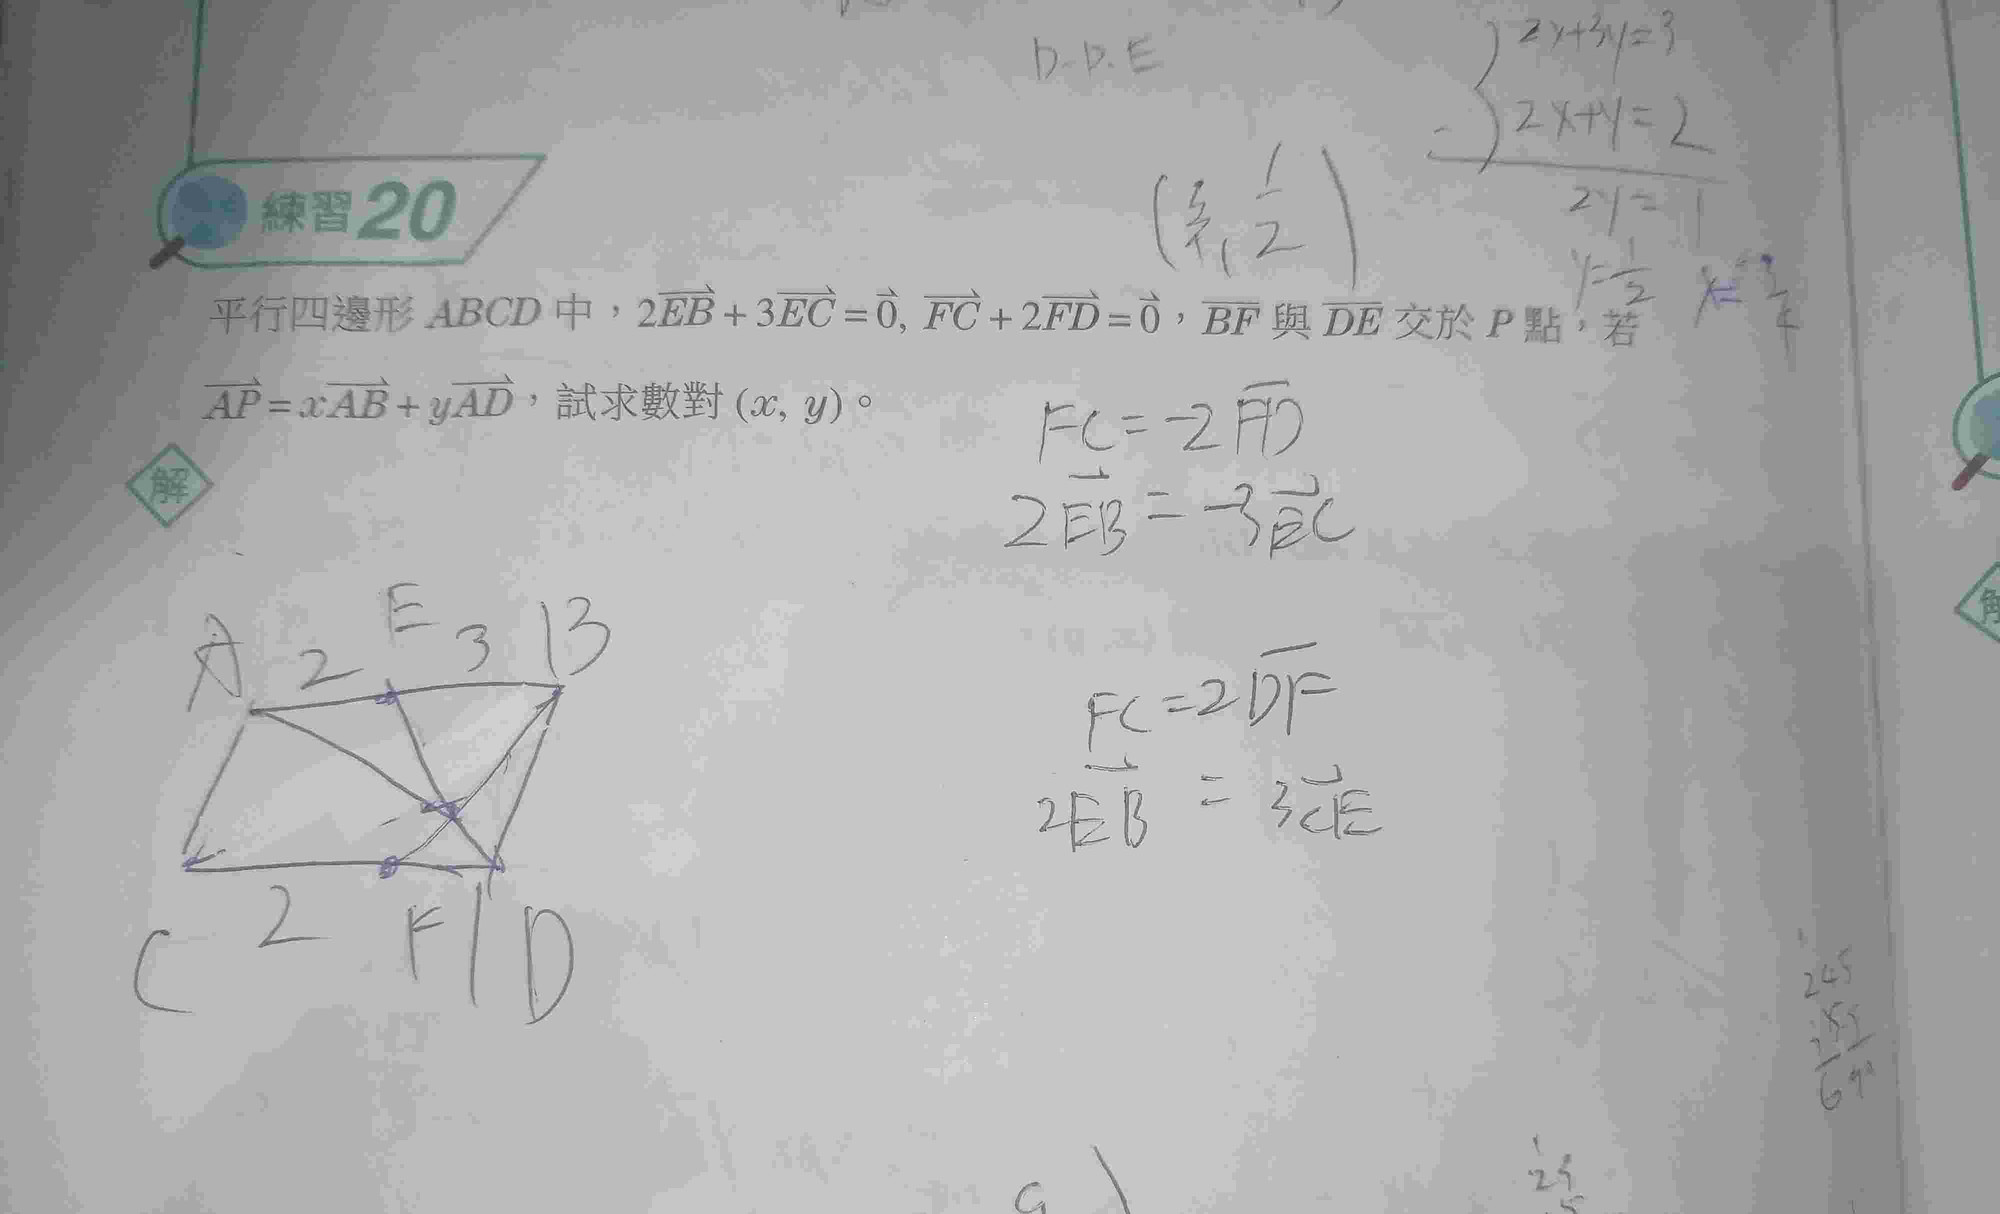 D.P.E
2x+3y=3
2x+y=2
2y=1
y=1/2
練習20
平行四邊形 ABCD 中，2EB⃗+3EC⃗=0⃗, FC⃗+2FD⃗=0⃗，B̅F̅ 與 D̅E̅ 交於 P 點，若
AP⃗=xAB⃗+yAD⃗，試求數對 (x, y)。
解
FC=-2F̅D̅
2EB⃗=-3EC⃗
A 2 E 3 B
FC=2D̅F̅
2EB⃗=3CE⃗
C 2 F 1 D
245